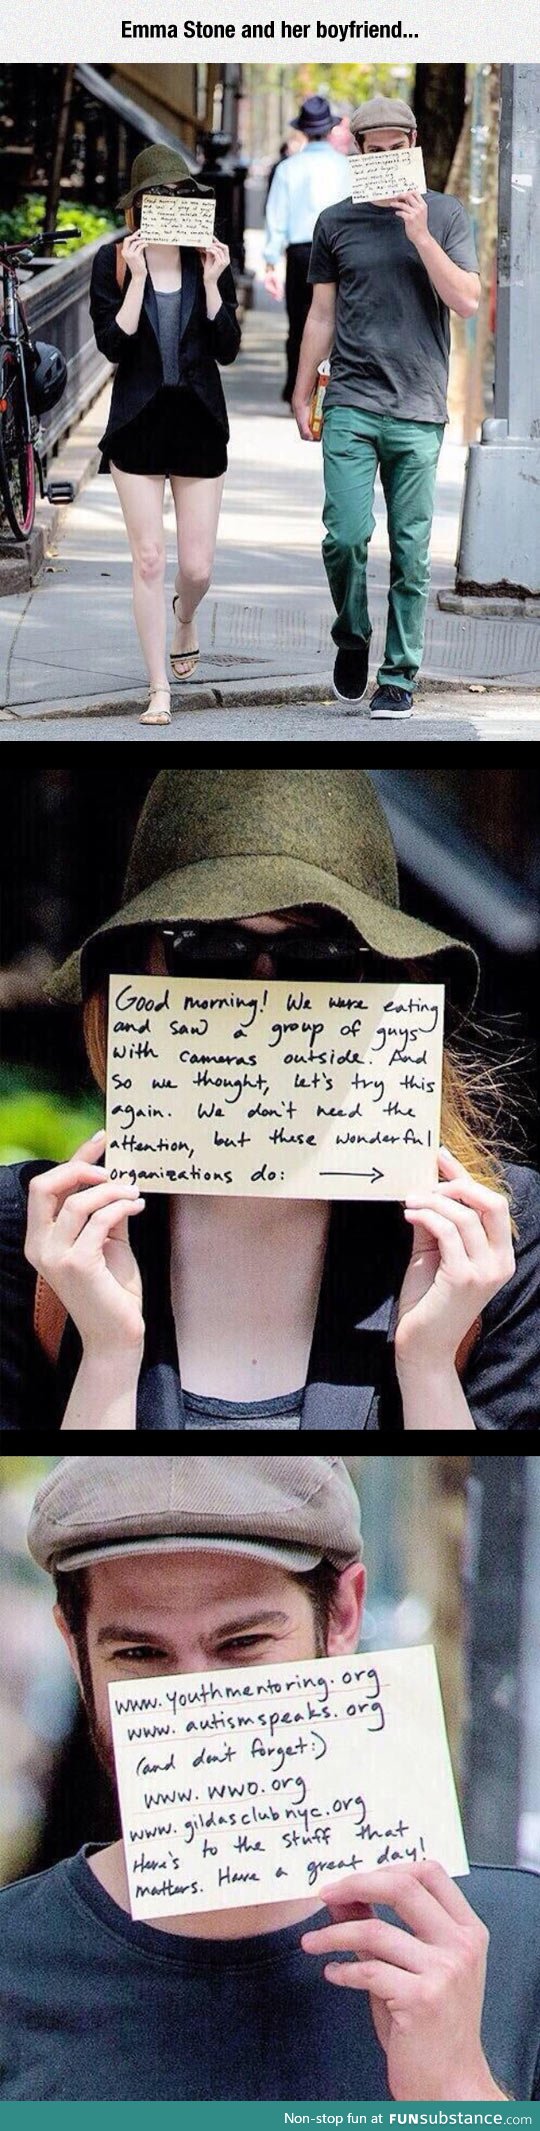 Emma Stone and her boyfriend...
Good morning! We were eating
and saw a group of guys
with cameras outside. And
so we thought, let's try this
again. We don't need the
attention, but these wonderful
organizations do: →
www.youthmentoring.org
www.autismspeaks.org
(and don't forget:)
www.wwo.org
www.gildasclubnyc.org
Here's to the stuff that
matters. Have a great day!
Non-stop fun at FUNsubstance.com